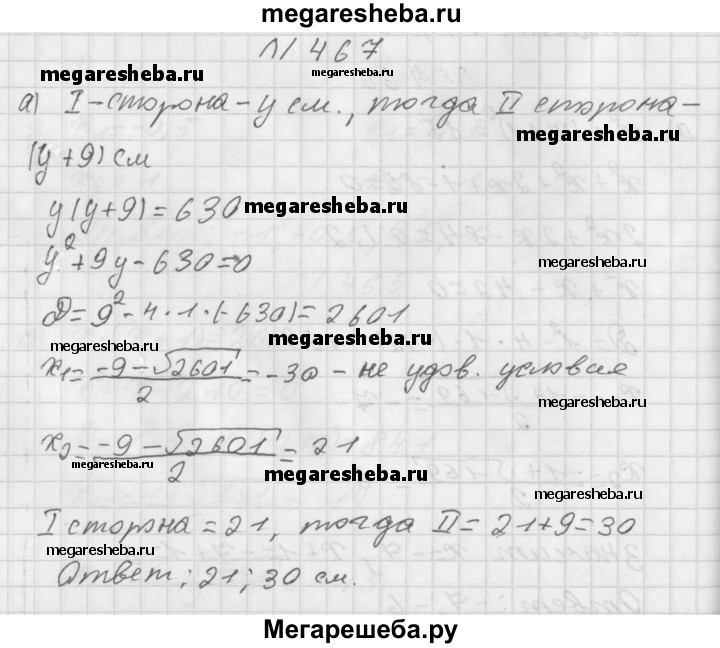 megaresheba.ru
№ 467
megaresheba.ru megaresheba.ru
а) I-сторона - y см., тогда II сторона -
megaresheba.ru
(y+9) см
y(y+9)=630 megaresheba.ru
y²+9y-630=0
megaresheba.ru
D=9²-4·1·(-630)=2601
megaresheba.ru
x₁=(-9-√2601)/2=-30 - не удов. условия
megaresheba.ru
x₂=(-9-√2601)/2=21
megaresheba.ru megaresheba.ru
megaresheba.ru
I сторона = 21, тогда II = 21+9=30
megaresheba.ru
Ответ; 21; 30 см.
Мегарешеба.ру